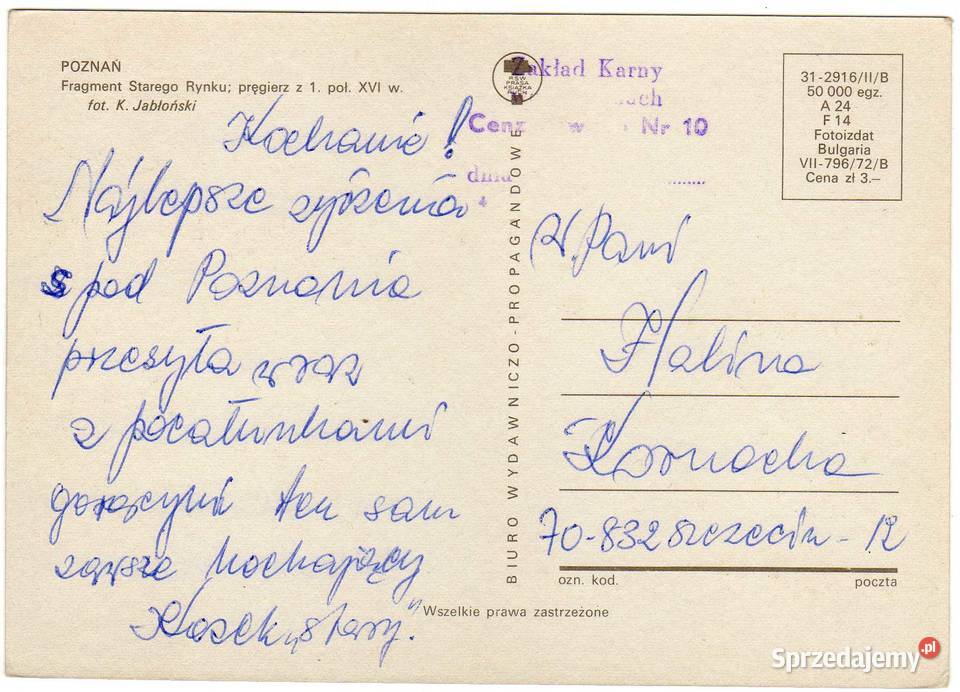 POZNAŃ
Fragment Starego Rynku; pręgierz z 1. poł. XVI w.
fot. K. Jabłoński
Kochanie!
Najlepsze życzenia
s pod Poznania
przesyła wraz
z pocałunkami
gorącymi ten sam
zawsze kochający
"stary".
Wszelkie prawa zastrzeżone
BIURO WYDAWNICZO-PROPAGANDOWE
RSW
PRASA
KSIĄŻKA
RUCH
Zakład Karny
Nr 10
dnia
31-2916/II/B
50 000 egz.
A 24
F 14
Fotoizdat
Bulgaria
VII-796/72/B
Cena zł 3.—
W. Pani
Halina
70-832 Szczecin - 12
ozn. kod.
poczta
Sprzedajemy.pl